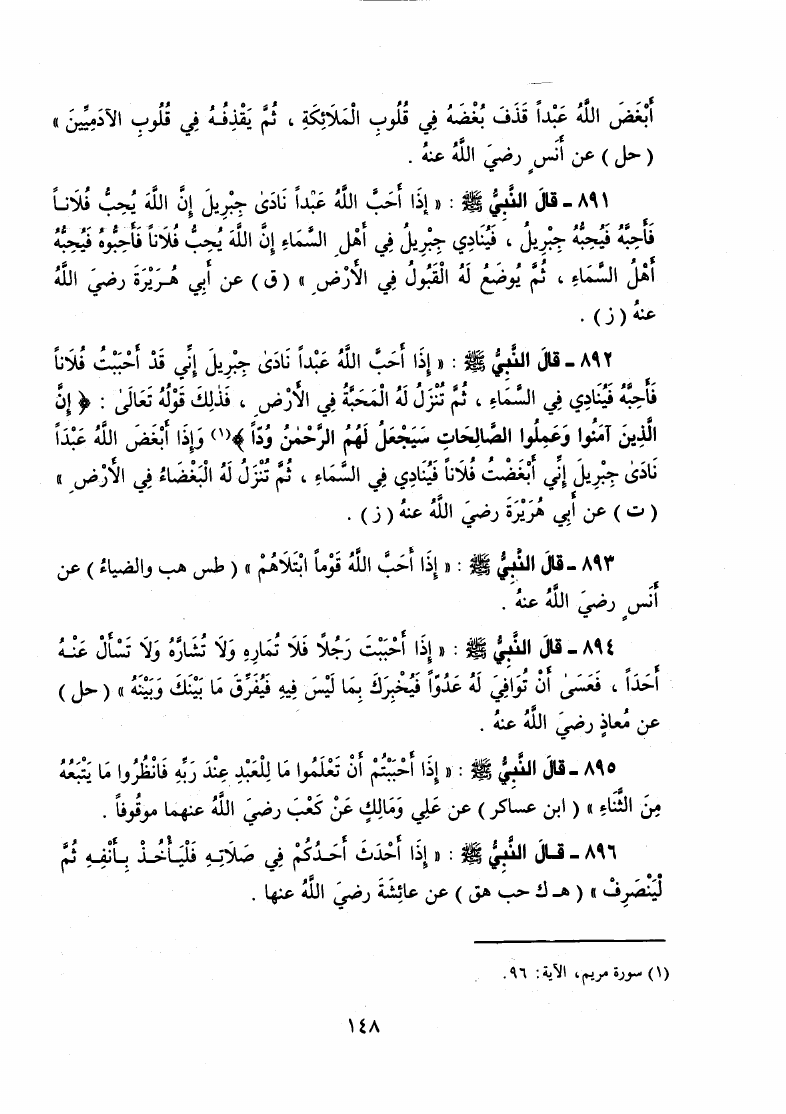 أَبْغَضَ اللَّهُ عَبْداً قَذَفَ بُغْضَهُ فِي قُلُوبِ الْمَلَائِكَةِ ، ثُمَّ يَقْذِفُـهُ فِي قُلُوبِ الْآدَمِيِّينَ »
( حل ) عن أَنَسٍ رضيَ اللَّهُ عنهُ .
٨٩١ - قالَ النَّبِيُّ ﷺ : « إِذَا أَحَبَّ اللَّهُ عَبْداً نَادَىٰ جِبْرِيلَ إِنَّ اللَّهَ يُحِبُّ فُلَانـاً
فَأَحِبَّهُ فَيُحِبُّهُ جِبْرِيلُ ، فَيُنَادِي جِبْرِيلُ فِي أَهْلِ السَّمَاءِ إِنَّ اللَّهَ يُحِبُّ فُلَاناً فَأَحِبُّوهُ فَيُحِبُّهُ
أَهْلُ السَّمَاءِ ، ثُمَّ يُوضَعُ لَهُ الْقَبُولُ فِي الْأَرْضِ » ( ق ) عن أَبِي هُـرَيْرَةَ رضيَ اللَّهُ
عنهُ ( ز ) .
٨٩٢ - قالَ النَّبِيُّ ﷺ : « إِذَا أَحَبَّ اللَّهُ عَبْداً نَادَىٰ جِبْرِيلَ إِنِّي قَدْ أَحْبَبْتُ فُلَاناً
فَأَحِبَّهُ فَيُنَادِي فِي السَّمَاءِ ، ثُمَّ تُنْزَلُ لَهُ الْمَحَبَّةُ فِي الْأَرْضِ ، فَذٰلِكَ قَوْلُهُ تَعَالَىٰ : ﴿ إِنَّ
الَّذِينَ آمَنُوا وَعَمِلُوا الصَّالِحَاتِ سَيَجْعَلُ لَهُمُ الرَّحْمٰنُ وُدّاً ﴾(١) وَإِذَا أَبْغَضَ اللَّهُ عَبْدَاً
نَادَىٰ جِبْرِيلَ إِنِّي أَبْغَضْتُ فُلَاناً فَيُنَادِي فِي السَّمَاءِ ، ثُمَّ تُنْزَلُ لَهُ الْبَغْضَاءُ فِي الْأَرْضِ »
( ت ) عن أَبِي هُرَيْرَةَ رضيَ اللَّهُ عنهُ ( ز ) .
٨٩٣ - قالَ النَّبِيُّ ﷺ : « إِذَا أَحَبَّ اللَّهُ قَوْماً ابْتَلَاهُمْ » ( طس هب والضياءُ ) عن
أَنَسٍ رضيَ اللَّهُ عنهُ .
٨٩٤ - قالَ النَّبِيُّ ﷺ : « إِذَا أَحْبَبْتَ رَجُلًا فَلَا تُمَارِهِ وَلَا تُشَارَّهُ وَلَا تَسْأَلْ عَنْـهُ
أَحَداً ، فَعَسَىٰ أَنْ تُوَافِيَ لَهُ عَدُوّاً فَيُخْبِرَكَ بِمَا لَيْسَ فِيهِ فَيُفَرِّقَ مَا بَيْنَكَ وَبَيْنَهُ » ( حل )
عن مُعاذٍ رضيَ اللَّهُ عنهُ .
٨٩٥ - قالَ النَّبِيُّ ﷺ : « إِذَا أَحْبَبْتُمْ أَنْ تَعْلَمُوا مَا لِلْعَبْدِ عِنْدَ رَبِّهِ فَانْظُرُوا مَا يَتْبَعُهُ
مِنَ الثَّنَاءِ » ( ابن عساكر ) عن عَلِي وَمَالِكٍ عَنْ كَعْبَ رَضيَ اللَّهُ عنهما موقُوفاً .
٨٩٦ - قـالَ النَّبِيُّ ﷺ : « إِذَا أَحْدَثَ أَحَـدُكُمْ فِي صَلَاتِـهِ فَلْيَـأْخُـذْ بِـأَنْفِـهِ ثُمَّ
لْيَنْصَرِفْ » ( هـ ك حب هق ) عن عائِشَةَ رضيَ اللَّهُ عنها .
(١) سورة مريم، الآية: ٩٦.
١٤٨